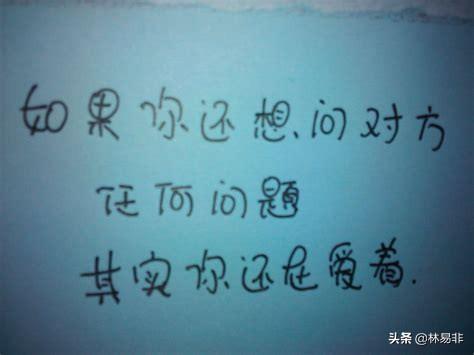 如果你还想问对方
任何问题
其实你还在爱着.
头条 @林易非